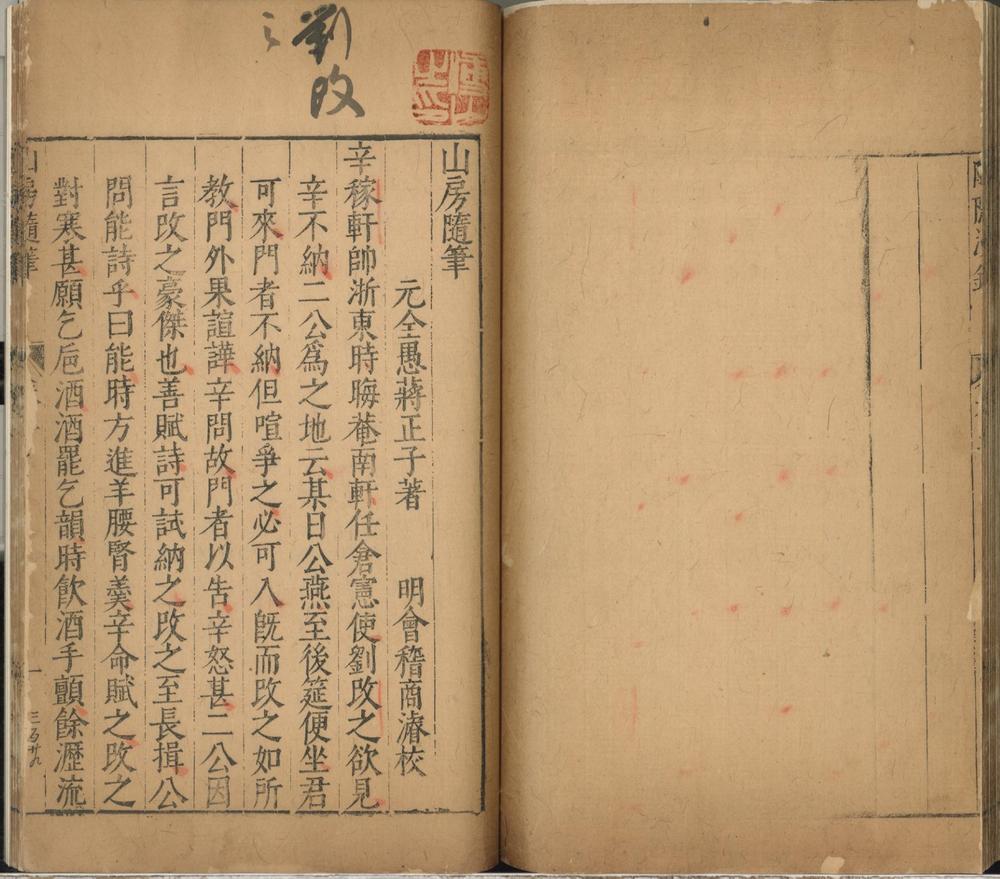 劉改之
山房隨筆
元全愚蔣正子著 明會稽商濬校
辛稼軒帥浙東時晦菴南軒任倉憲使劉改之欲見
辛不納二公爲之地云某日公燕至後筵便坐君
可來門者不納但喧爭之必可入旣而改之如所
教門外果諠譁辛問故門者以告辛怒甚二公因
言改之豪傑也善賦詩可試納之改之至長揖公
問能詩乎曰能時方進羊腰腎羹辛命賦之改之
對寒甚願乞巵酒酒罷乞韻時飮酒手顫餘瀝流
山房隨筆
一